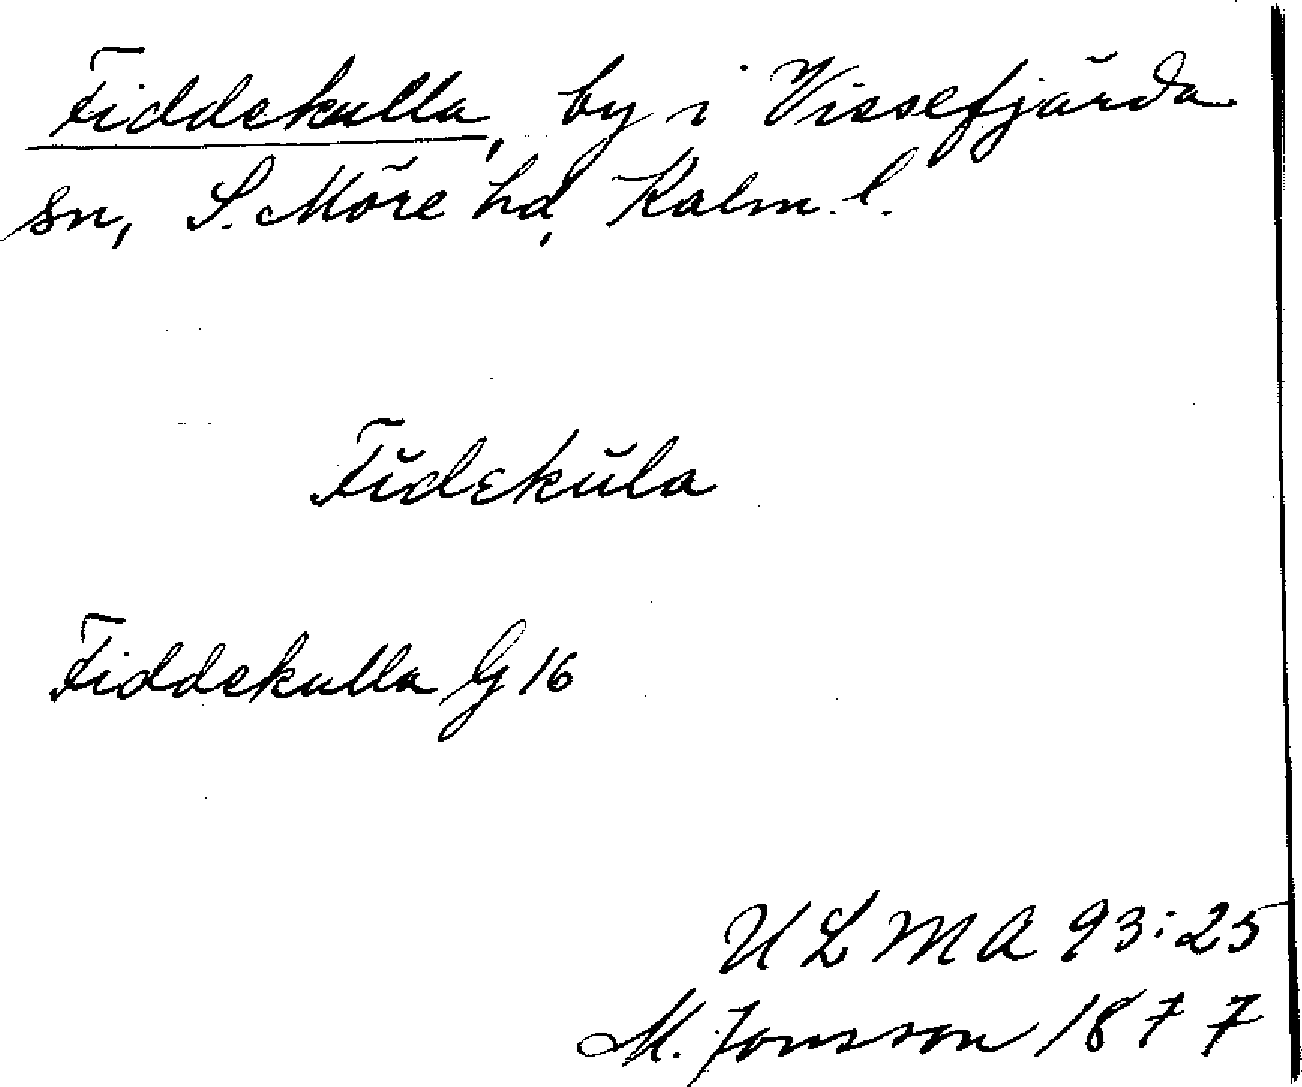 Fiddekulla, by i Vissefjärda
sn, S. Möre hd, Kalm. l.
Fĭdekŭla
Fiddekulla G 16
ULMA 93:25
M. Jonsson 1877